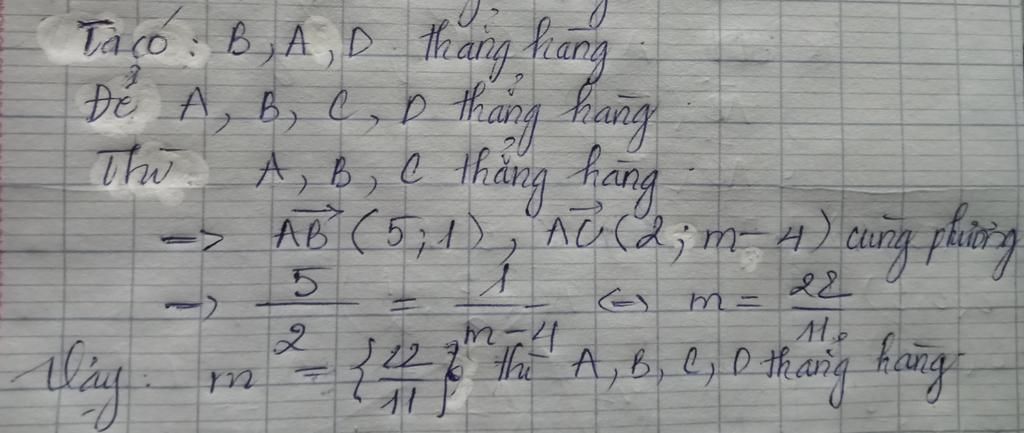 Ta có: B, A, D thẳng hàng
Để A, B, C, D thẳng hàng
Thì A, B, C thẳng hàng
=> AB→ (5; 1), AC→ (2; m-4) cùng phương
=> 5/2 = 1/(m-4) <=> m = 22/11.
Vậy: m = {22/11} thì A, B, C, D thẳng hàng